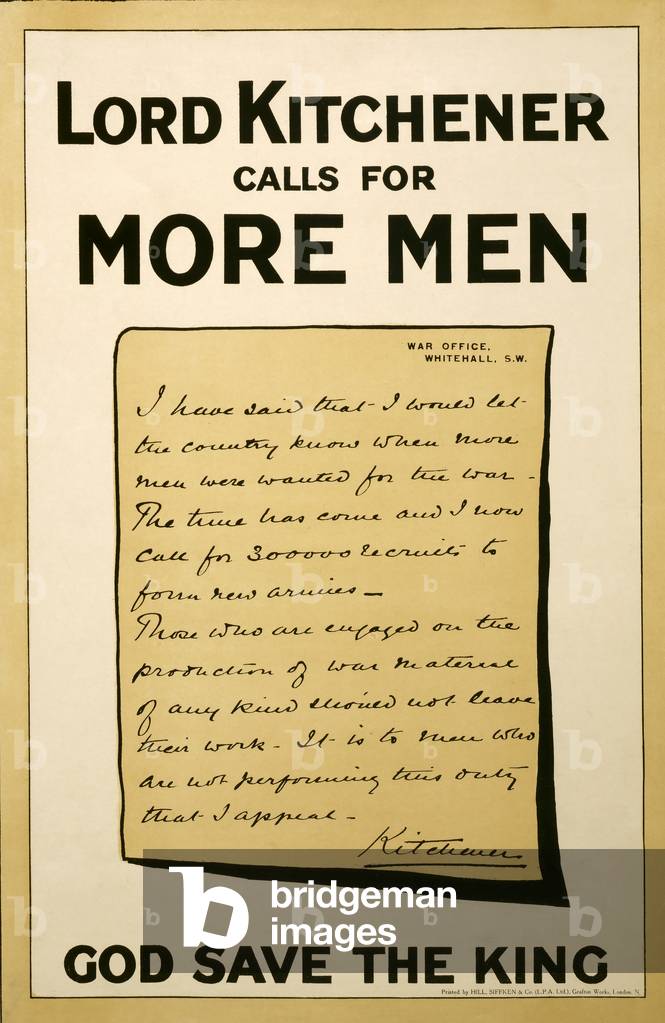 LORD KITCHENER
CALLS FOR
MORE MEN
WAR OFFICE,
WHITEHALL, S.W.
I have said that I would let
the country know when more
men were wanted for the war -
The time has come and I now
call for 300000 recruits to
form new armies -
Those who are engaged on the
production of war material
of any kind should not leave
their work - It is to men who
are not performing this duty
that I appeal -
Kitchener
b bridgeman
images
GOD SAVE THE KING
Printed by HILL, SIFFKEN & Co. (L.P.A. Ltd.), Grafton Works, London, N.